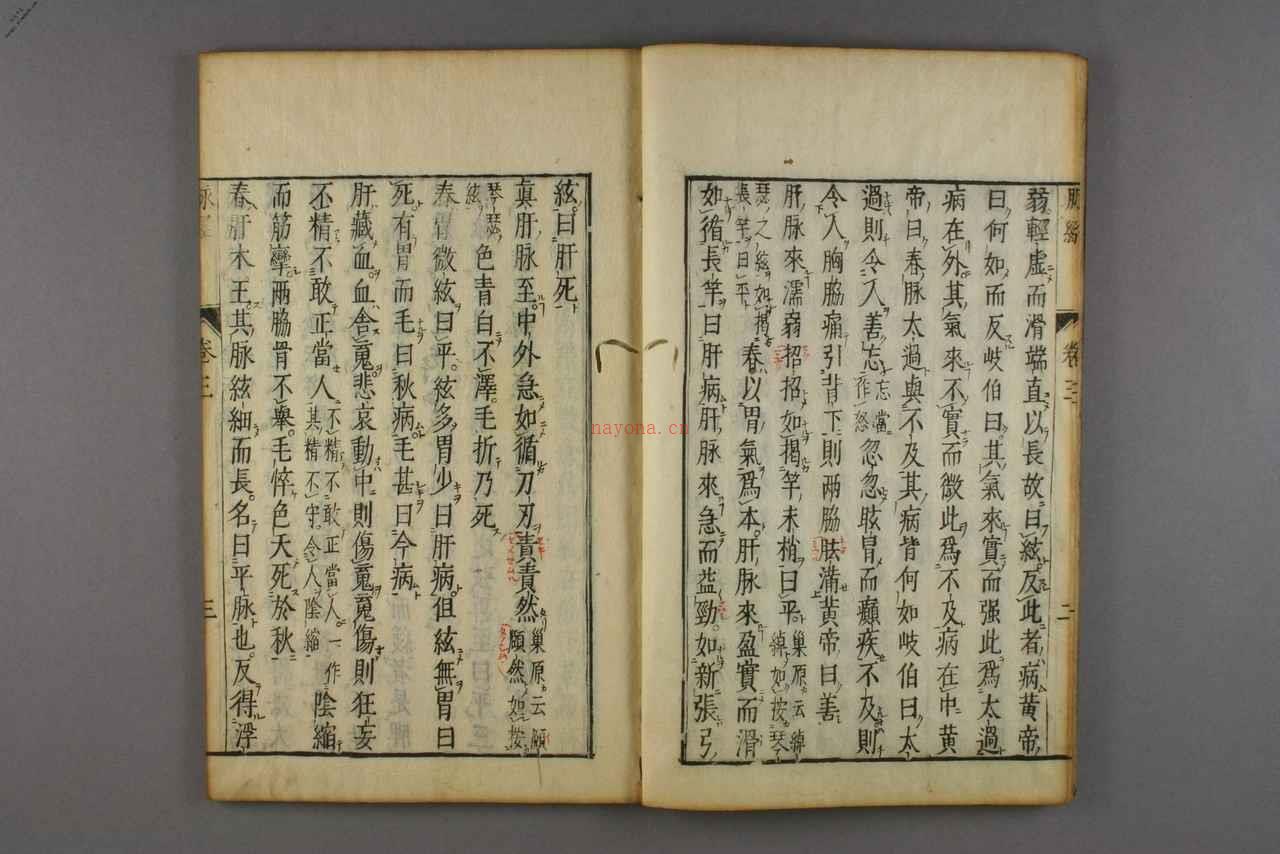 脈經 卷三 二
弱輕虛而滑端直以長故曰絃反此者病黃帝
曰何如而反岐伯曰其氣來實而强此爲太過
病在外其氣來不實而微此爲不及病在中黃
帝曰春脉太過與不及其病皆何如岐伯曰太
過則令人善忘忘當作怒忽忽眩冒而癲疾不及則
令人胸脇痛引背下則兩脇胠滿黃帝曰善
肝脉來濡弱招招如揭竿末梢曰平巢原云綽綽如按琴
瑟之絃如揭長竿曰平春以胃氣爲本肝脉來盈實而滑
如循長竿曰肝病肝脉來急而益勁如新張弓
絃曰肝死
眞肝脉至中外急如循刀刃責責然巢原云賾賾然如按
琴瑟絃色青白不澤毛折乃死
春胃微絃曰平絃多胃少曰肝病但絃無胃曰
死有胃而毛曰秋病毛甚曰今病
肝藏血血舍䰟悲哀動中則傷䰟䰟傷則狂妄
不精不敢正當人不精不敢正當人一作其精不守令人陰縮陰縮
而筋攣兩脇骨不舉毛悴色夭死於秋
春肝木王其脉絃細而長名曰平脉也反得浮
卷三 三
nayona.cn